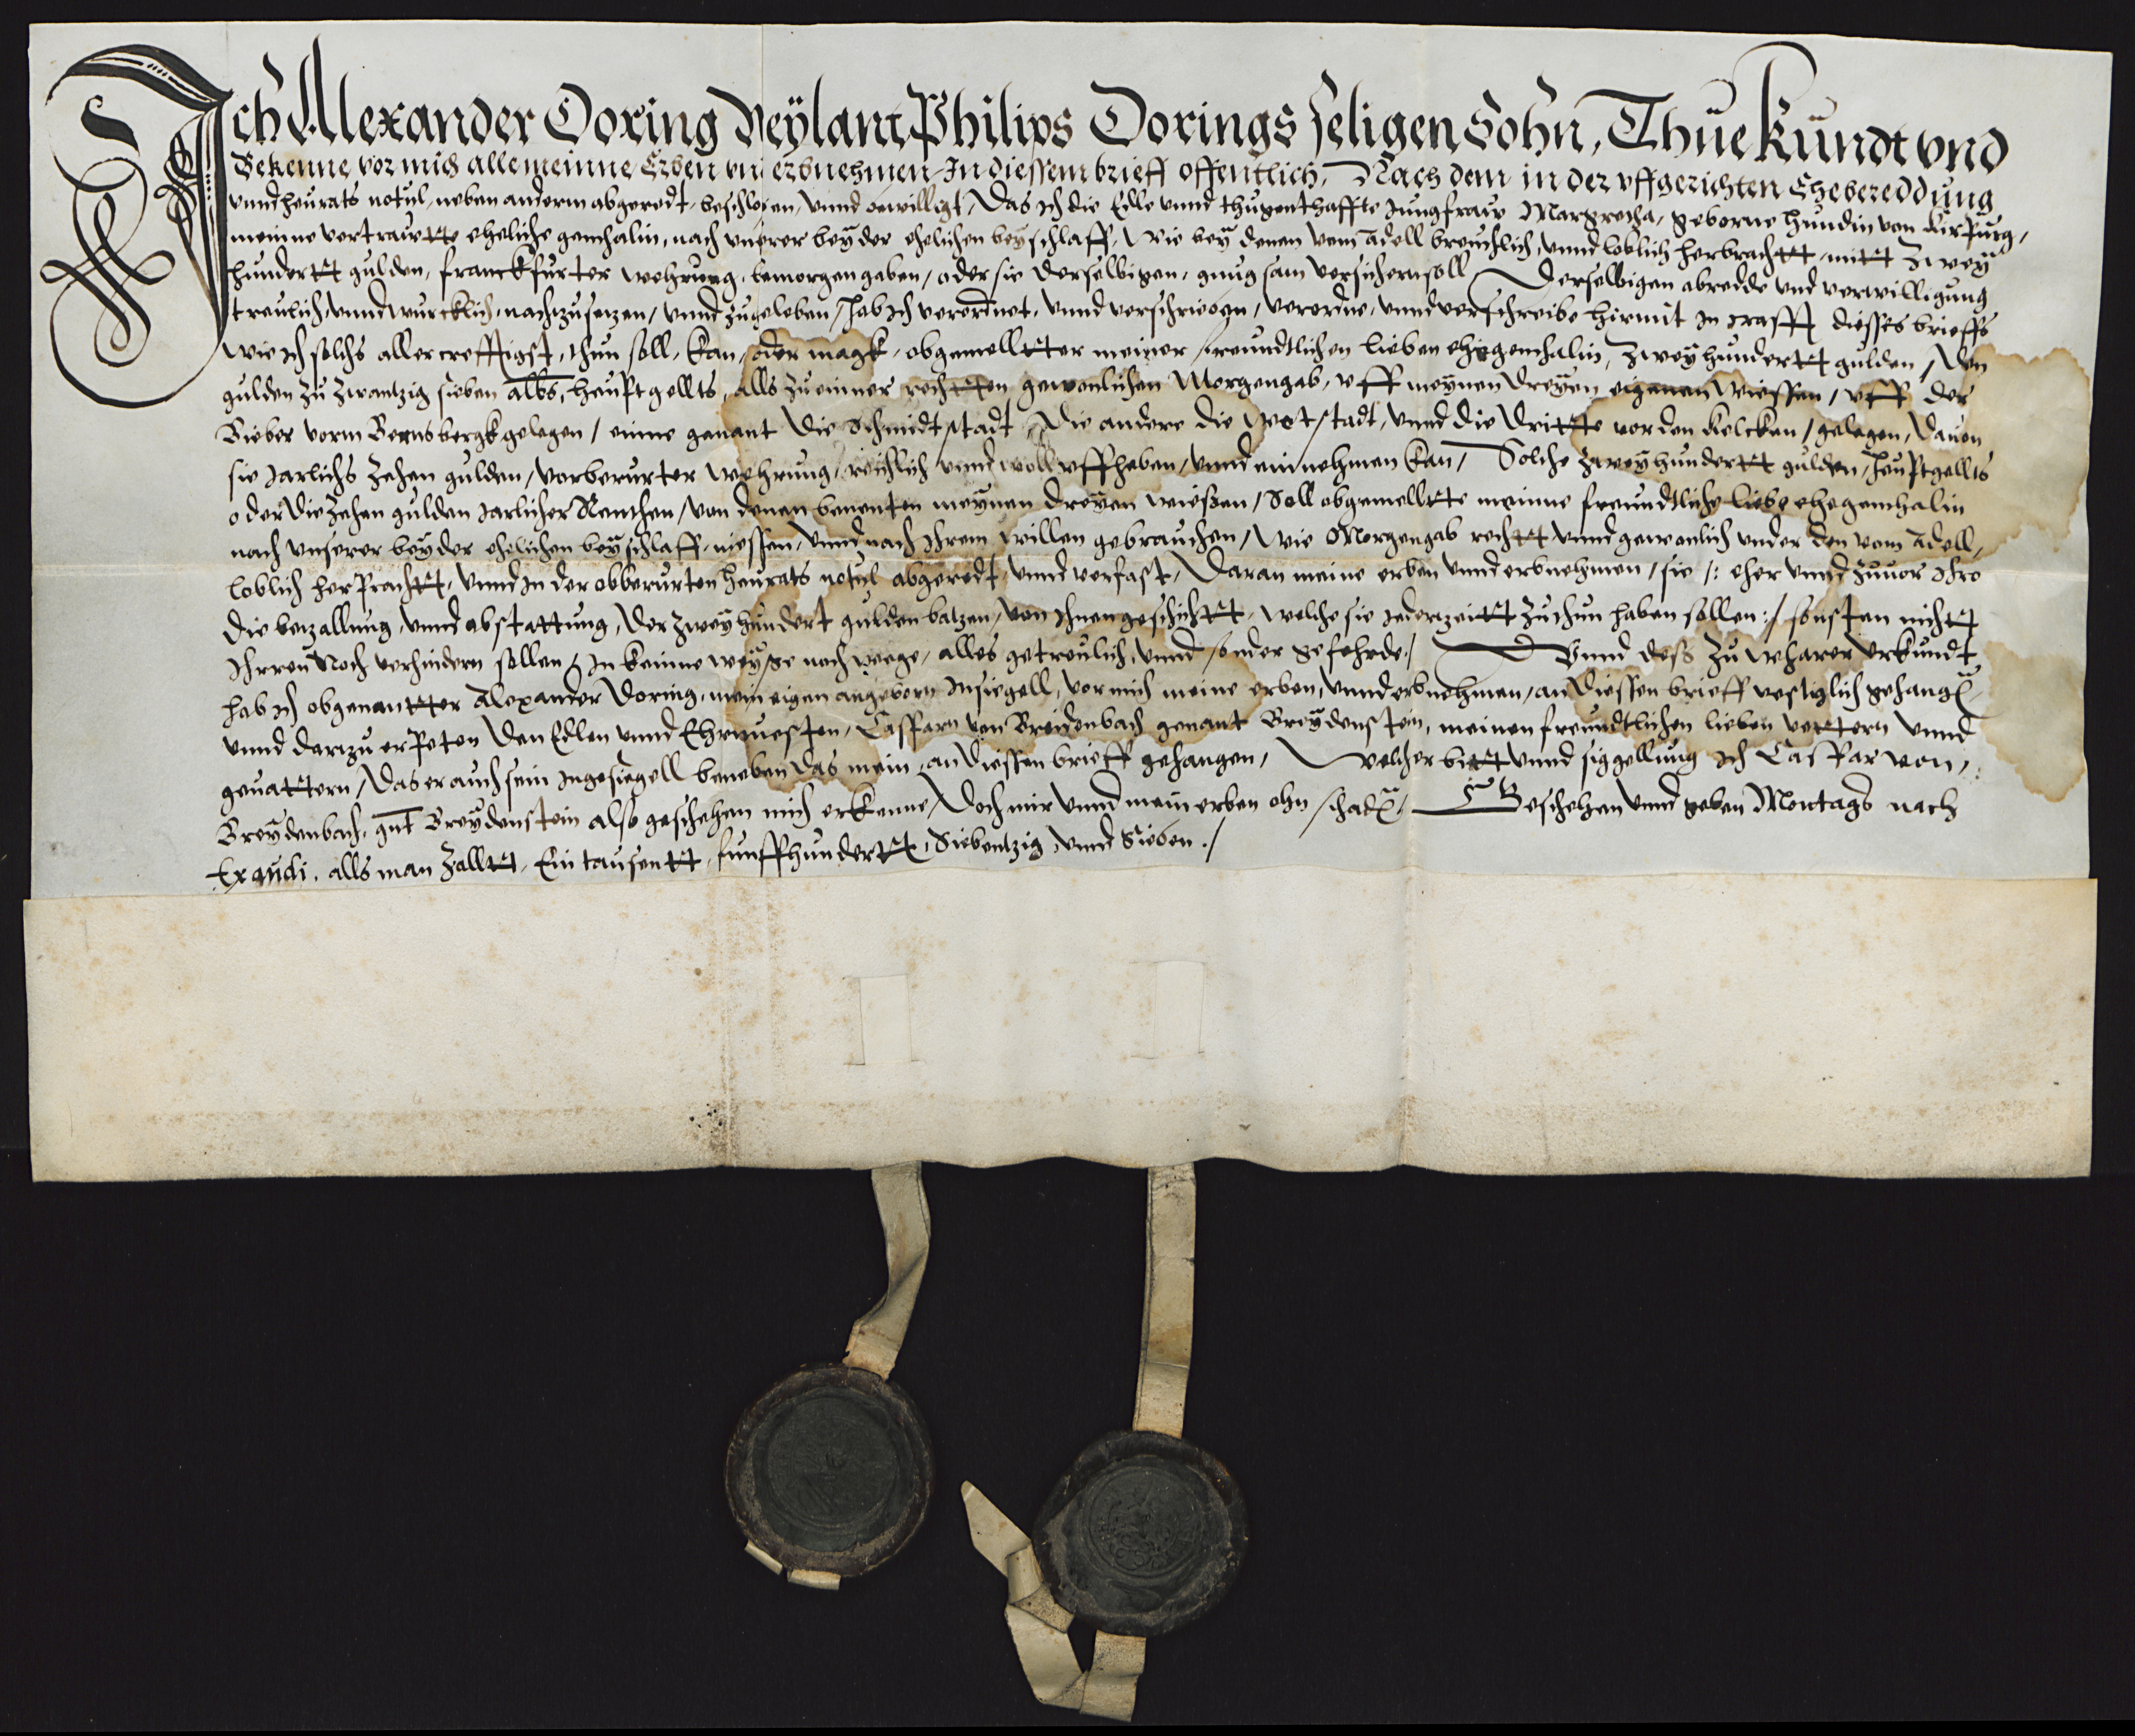 Ich Alexander Doring Weÿlant Philips Dorings seligen Sohn, Thue kundt vnd
Bekenne vor mich alle meinne Erben vnd erbnehmen In diessem brieff offentlich, Nach dem in der vffgerichten Ehebereddung
vnnd heurats notul, neben anderm abgeredt, beschlossen, vnnd bewilligt, Das ich die Edle vnnd thugenthaffte Jungfrauw Margretha, geborne Hundin von Kirpurg,
meinne vertrauwtte eheliche gemhalin, nach vnserer beÿder ehelichen beÿschlaff, Wie beÿ denen vom adell breuchlich, vnnd loblich herbrachtt, mitt Zweÿ
hundertt gulden, franckfurter wehrung, bemorgengaben, oder sie derselbigen, gnugsam versichern soll, Derselbigen abredde vnd verwilligung
treulich, vnnd wurcklich, nachzusetzen, vnnd zugeleben, hab ich verordnet, vnnd verschrieben, verordne, vnnd verschreibe hirmit in crafft diesses brieffs
wie ich solchs aller crefftigst, thun soll, kan, oder magk, obgemelltter meiner freundtlichen lieben ehegemhalin, Zweÿhundertt gulden, den
gulden zu zwantzig sieben albs, heuptgellts, alls zu einner rechtten gewonlichen Morgengab, vff meÿnen dreÿen eigenen wiessen, vff der
Bieber vorm Bernsbergk gelegen, einne genant die Schmidtstadt, die andere die Wetstadt, vnnd die dritte vor den Kelcken, gelegen, dauon
sie jarlichs Zehen gulden, vorberurter wehrung, reichlich vnnd woll vffheben, vnnd einnehmen kan, Solche Zweÿhundertt gulden, heuptgellts
oder die zehen gulden jarlicher Renthen, von denen benenten meÿnen dreÿen wießen, Soll obgemelltte meinne freundtliche liebe ehegemhalin
nach vnserer beÿder ehelichen beÿschlaff, niessen, vnnd nach ihrem willen gebrauchen, Wie Morgengab rechtt vnnd gewonlich vnder den vom adell,
loblich herprachtt, vnnd in der obberurten heurats notul abgeredt, vnnd verfast, Daran meine erben vnnd erbnehmen, sie /: eher vnnd zuuor ihro
die bezallung, vnnd abstattung, der Zweÿhundert gulden batzen, von ihnen geschichtt, welche sie iederzeitt zuthun haben sollen :/ sonsten nichtt
Ihrren Noch verhindern sollen, in keinne weÿße noch wege, alles getreulich, vnnd sonder gefehrde, Vnnd deß zu wharer vrkundt
hab ich obgenantter Alexander Doring, mein eigen angeborn Insiegell, vor mich meine erben, vnnd erbnehmen, an diessen brieff vestiglich gehangen
vnnd darzu erpeten den Edlen vnnd Ehrnuesten, Casparn von Breidenbach genant Breÿdenstein, meinen freundtlichen lieben vettern vnnd
geuattern, das er auch sein ingesiegell beneben das mein, an diessen brieff gehangen, Welcher bitt vnnd siggellung ich Caspar von
Breÿdenbach, gnt Breÿdenstein also geschehen mich erkenne, doch mir vnnd mein erben ohn schaden, Geschehen vnnd geben Montags nach
Exaudi, alls man Zalltt, Ein tausentt, funffhundertt, Siebentzig, vnnd Sieben.